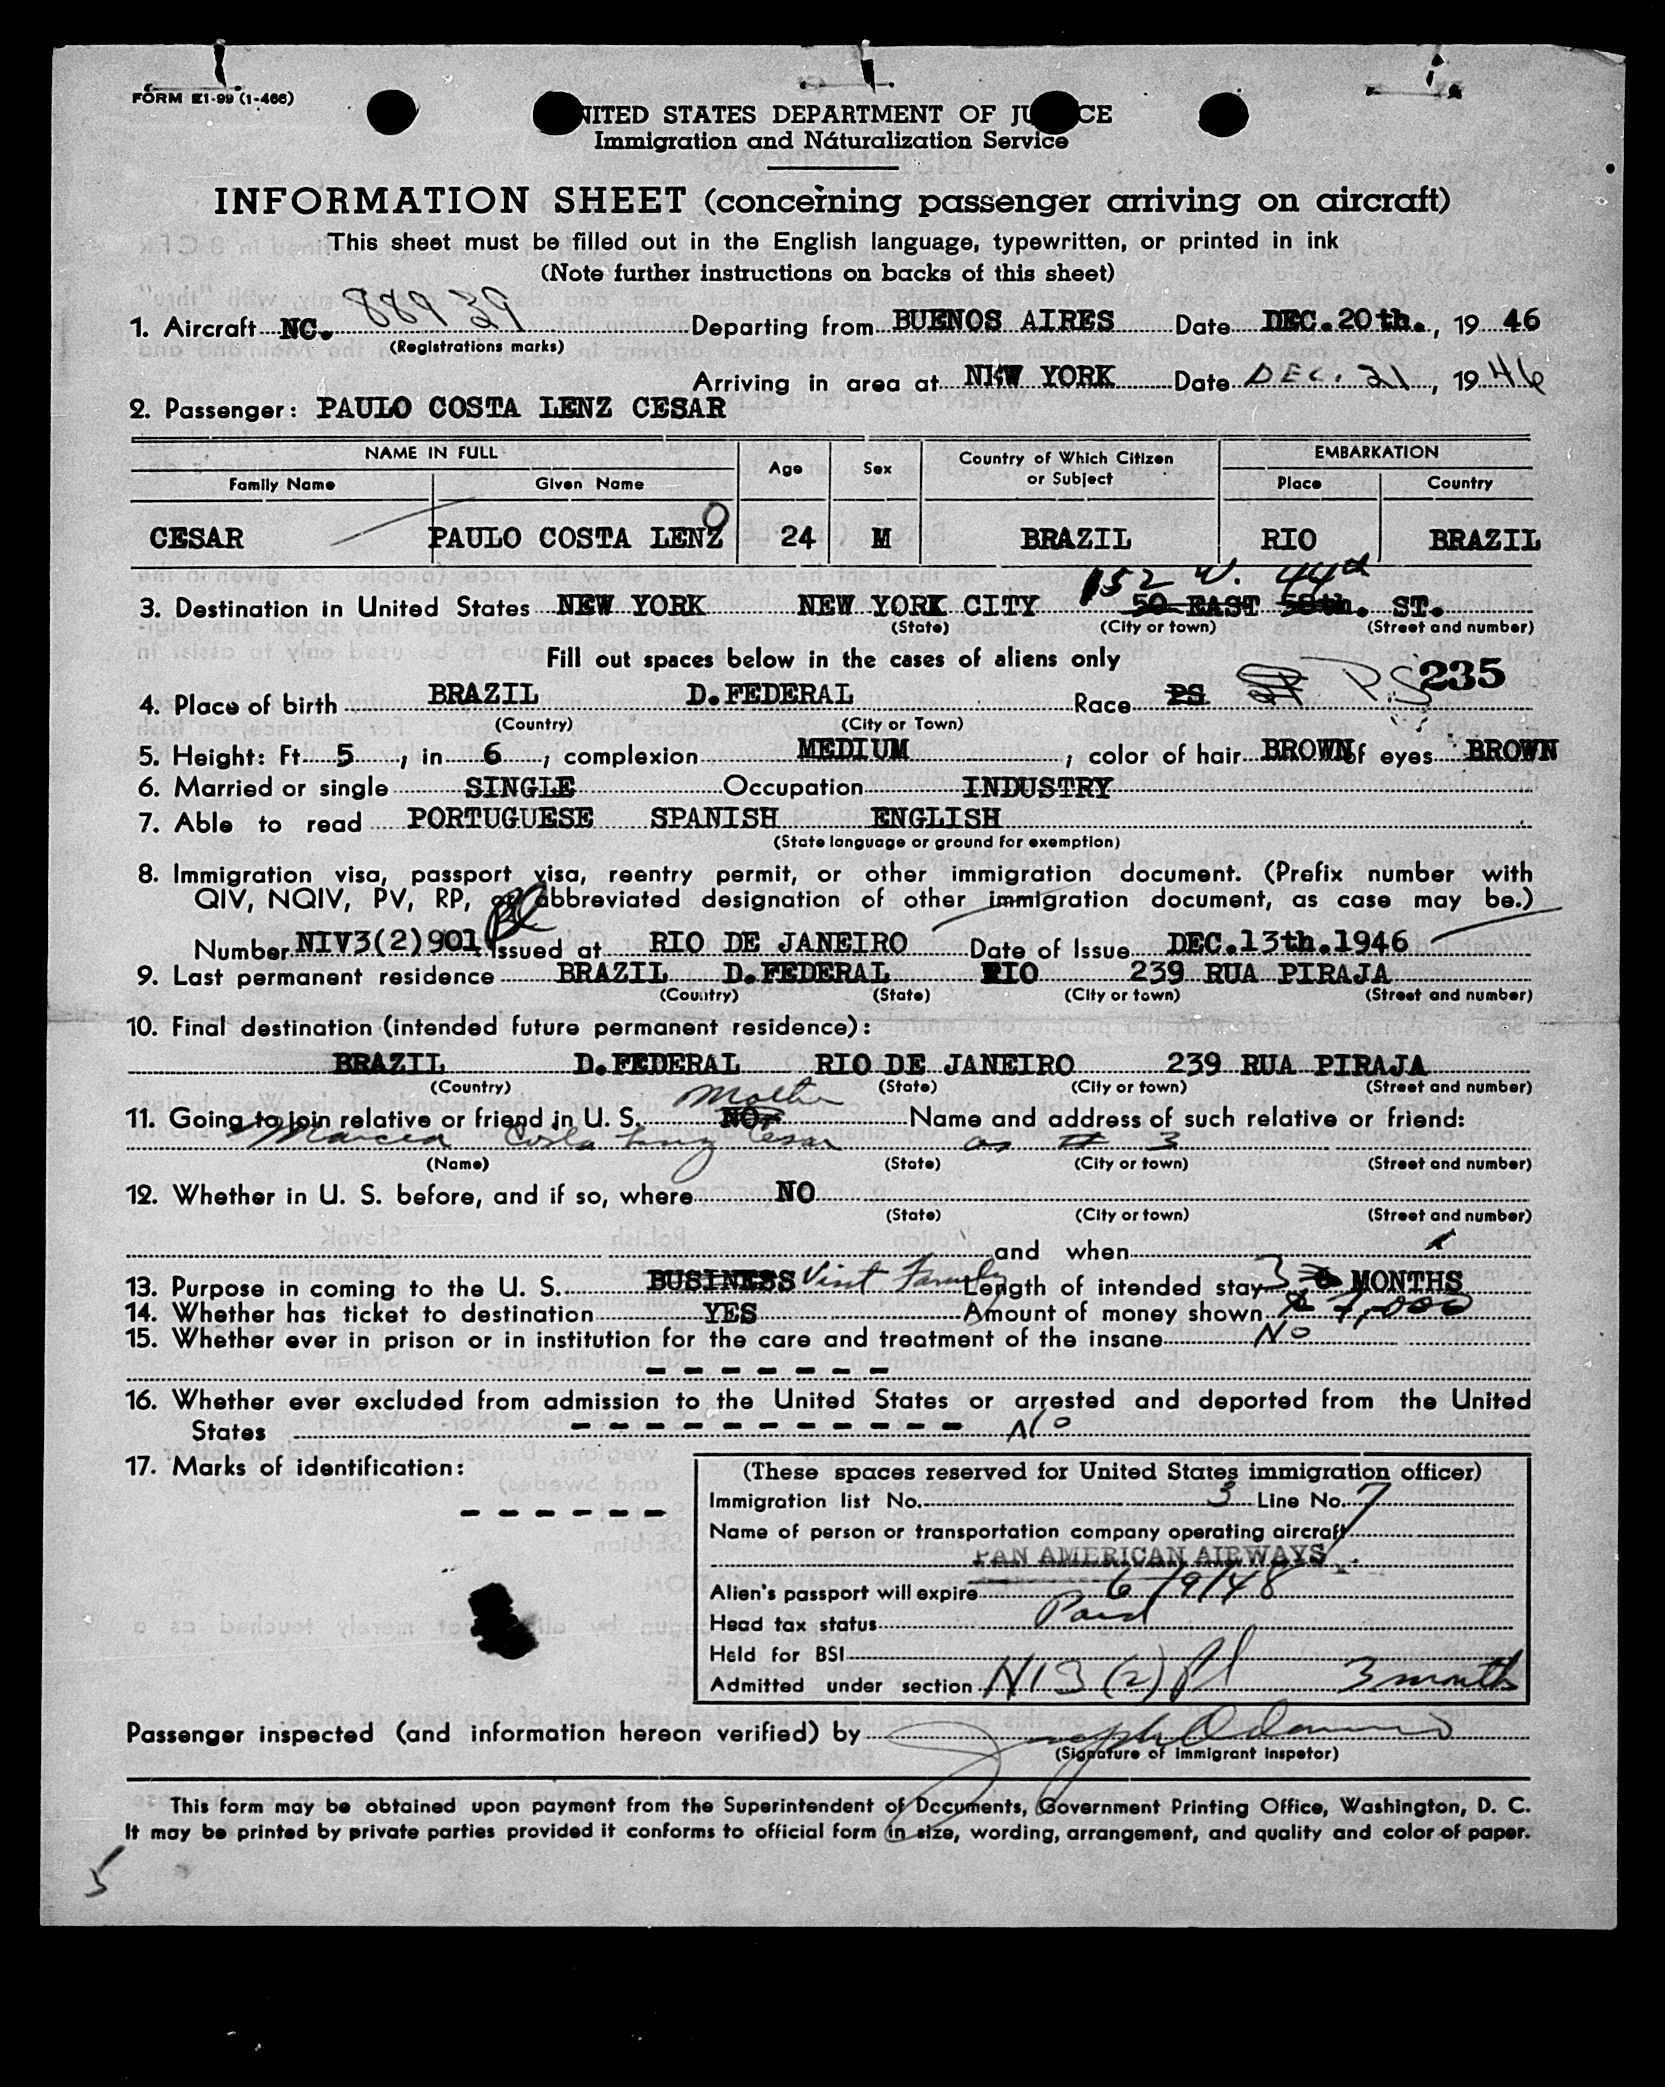 FORM I-466 (1-466)
UNITED STATES DEPARTMENT OF JUSTICE
Immigration and Naturalization Service
INFORMATION SHEET (concerning passenger arriving on aircraft)
This sheet must be filled out in the English language, typewritten, or printed in ink
(Note further instructions on backs of this sheet)
1. Aircraft NC. 88939 Departing from BUENOS AIRES Date DEC.20th., 19 46
(Registrations marks)
Arriving in area at NEW YORK Date DEC. 21, 19 46
2. Passenger: PAULO COSTA LENZ CESAR
NAME IN FULL Age Sex Country of Which Citizen or Subject EMBARKATION
Family Name Given Name Place Country
CESAR PAULO COSTA LENZ 24 M BRAZIL RIO BRAZIL
152 W. 44th
3. Destination in United States NEW YORK NEW YORK CITY 50 EAST 58th. ST.
(State) (City or town) (Street and number)
Fill out spaces below in the cases of aliens only
235
4. Place of birth BRAZIL D.FEDERAL Race PS PS
(Country) (City or Town)
5. Height: Ft. 5, in 6; complexion MEDIUM; color of hair BROWN of eyes BROWN
6. Married or single SINGLE Occupation INDUSTRY
7. Able to read PORTUGUESE SPANISH ENGLISH
(State language or ground for exemption)
8. Immigration visa, passport visa, reentry permit, or other immigration document. (Prefix number with
QIV, NQIV, PV, RP, or abbreviated designation of other immigration document, as case may be.)
Number NIV3(2)901 Issued at RIO DE JANEIRO Date of Issue DEC.13th.1946
9. Last permanent residence BRAZIL D.FEDERAL RIO 239 RUA PIRAJA
(Country) (State) (City or town) (Street and number)
10. Final destination (intended future permanent residence):
BRAZIL D.FEDERAL RIO DE JANEIRO 239 RUA PIRAJA
(Country) (State) (City or town) (Street and number)
Mother
11. Going to join relative or friend in U. S. NO. Name and address of such relative or friend:
Costa Lenz Cesar as # 3
(Name) (State) (City or town) (Street and number)
12. Whether in U. S. before, and if so, where NO
(State) (City or town) (Street and number)
and when
13. Purpose in coming to the U. S. BUSINESS Visit Family Length of intended stay 3 MONTHS
14. Whether has ticket to destination YES Amount of money shown $ 7,000
15. Whether ever in prison or in institution for the care and treatment of the insane No
- - - - - - -
16. Whether ever excluded from admission to the United States or arrested and deported from the United
States - - - - - - - - - - - No
17. Marks of identification:
- - - - - -
(These spaces reserved for United States immigration officer)
Immigration list No. 3 Line No. 7
Name of person or transportation company operating aircraft
PAN AMERICAN AIRWAYS
Alien's passport will expire 6/9/48
Head tax status Paid
Held for BSI
Admitted under section 3 (2) 3 months
Passenger inspected (and information hereon verified) by Joseph
(Signature of immigrant inspetor)
This form may be obtained upon payment from the Superintendent of Documents, Government Printing Office, Washington, D. C.
It may be printed by private parties provided it conforms to official form in size, wording, arrangement, and quality and color of paper.
5